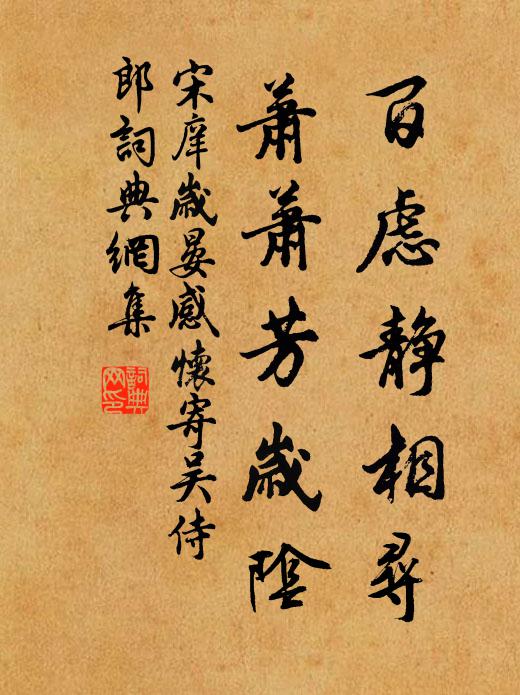 百慮静相尋
蕭蕭芳歲陰
宋庠歲晏感懷寄吴侍
郎詞典網集
詞典
网印